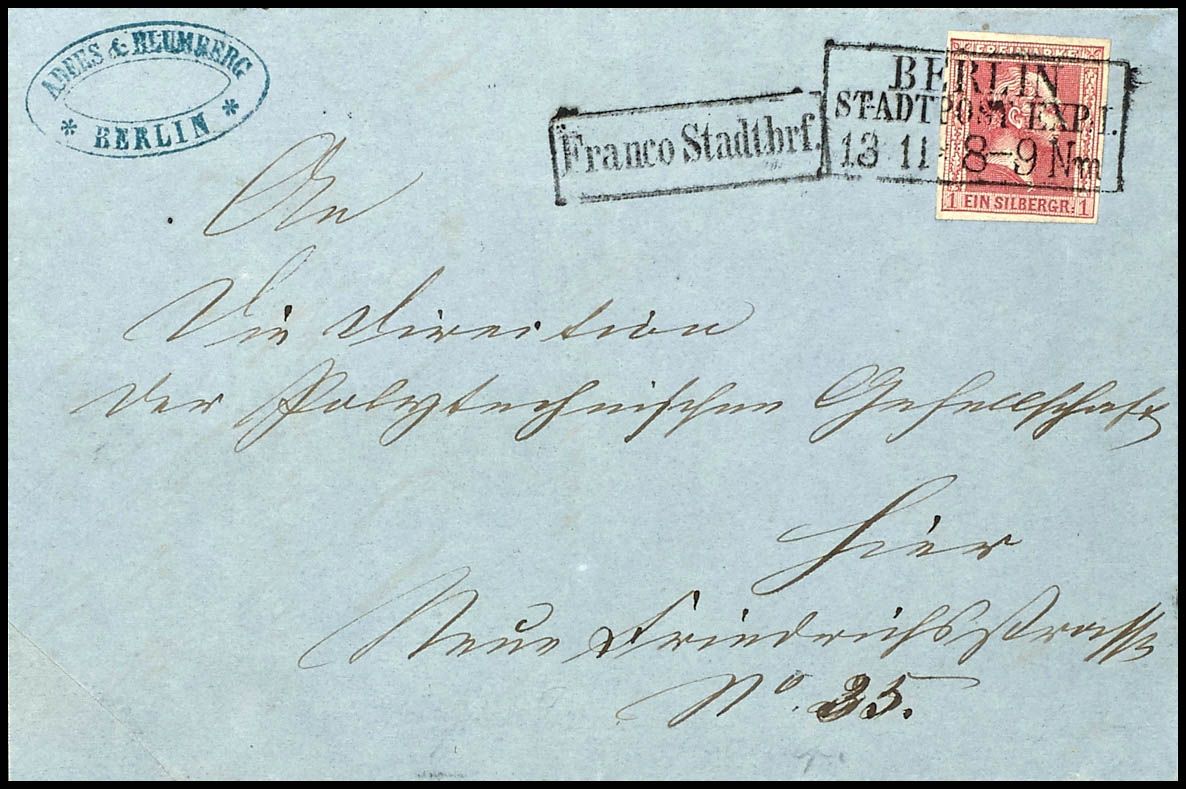 ABEES & BLUMBERG
* BERLIN *
Franco Stadtbrf.
BERLIN
STADTPOST-EXP. I.
13 11 8-9 Nm
FREIMARKE
1 EIN SILBERGR. 1
An
Die Direction
der Polytechnischen Gesellschaft
hier
Neue Friedrichsstrasse
No 35.